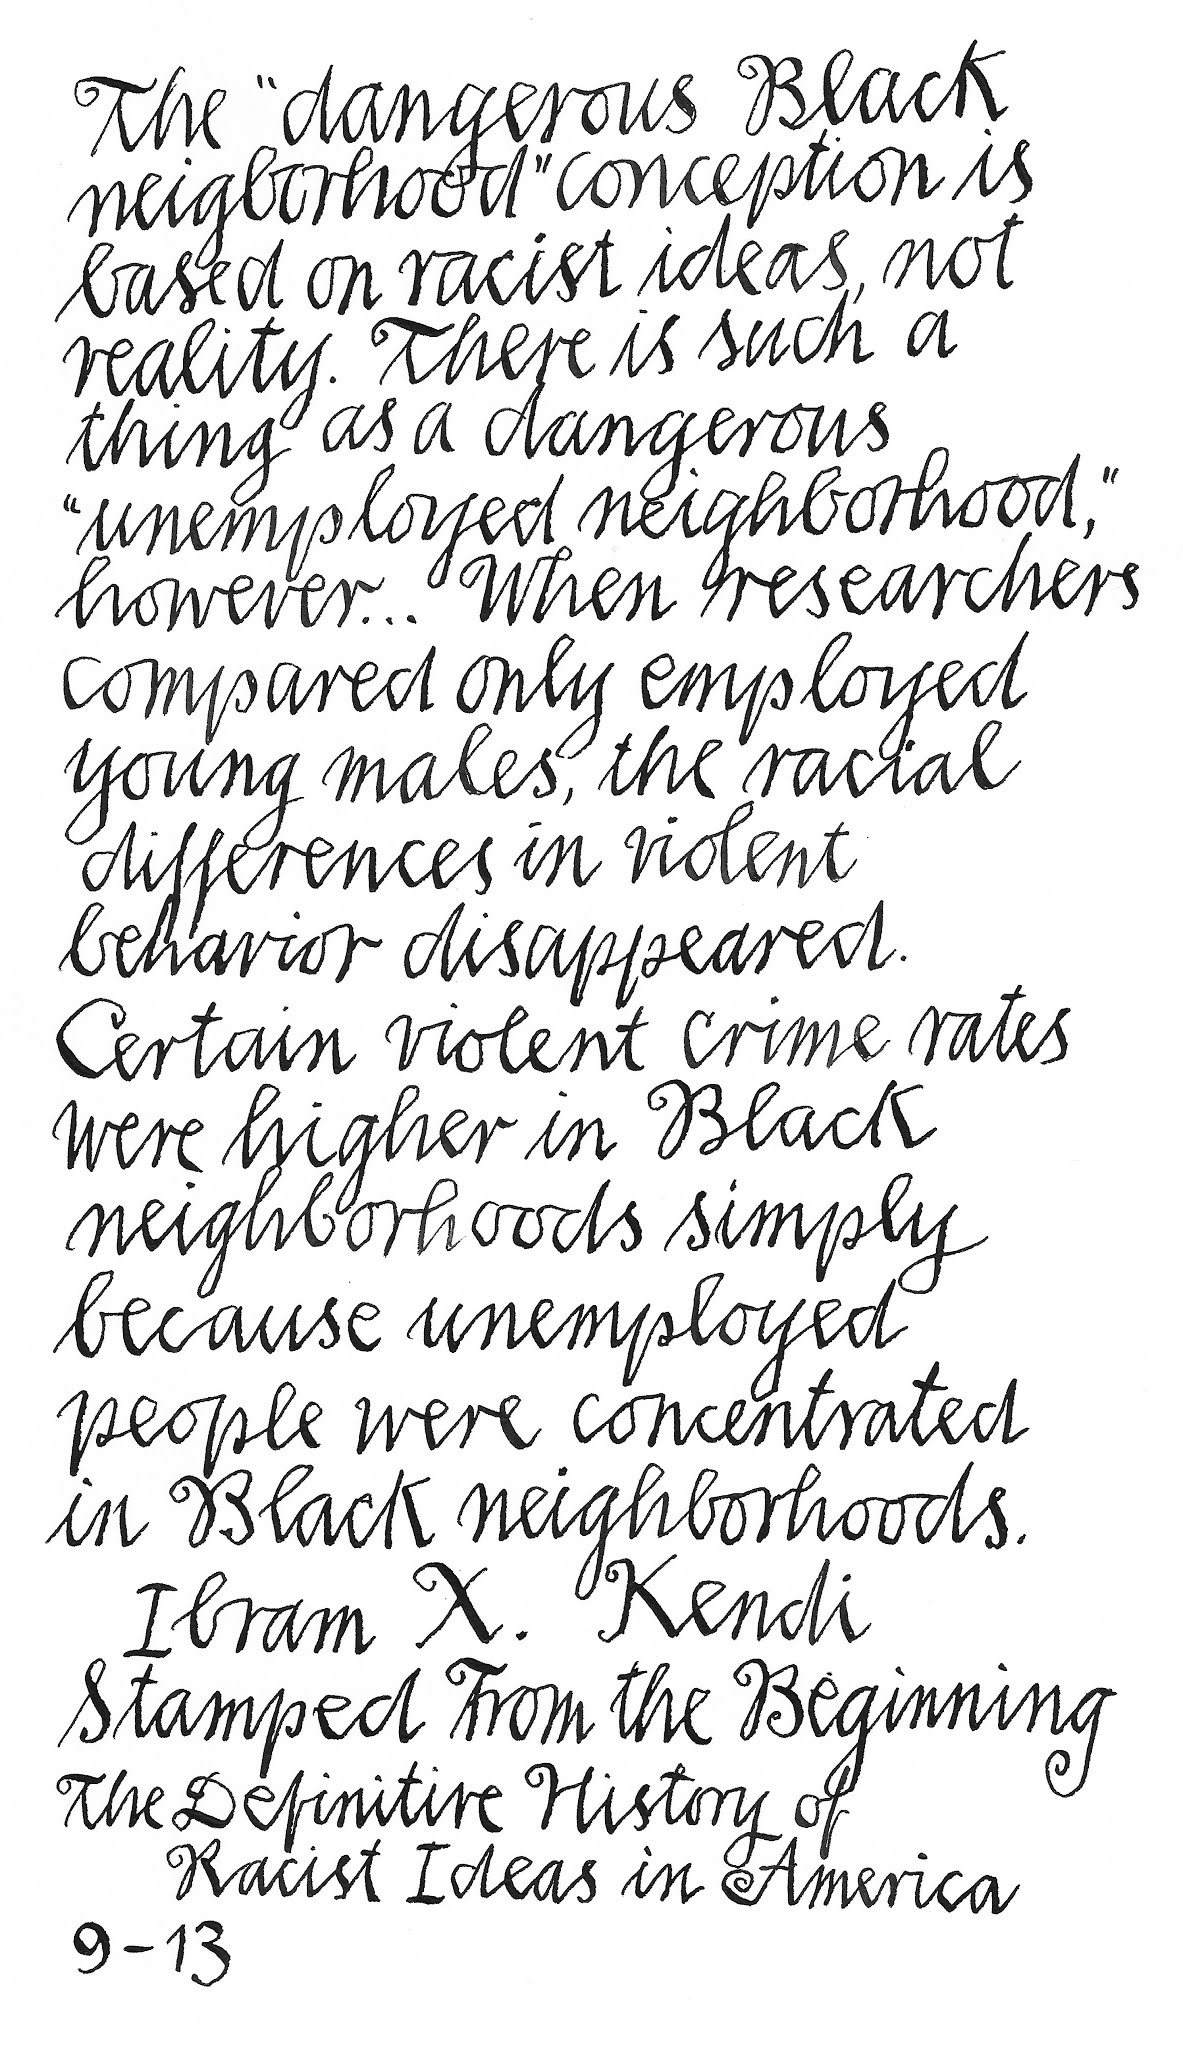 The "dangerous Black
neigborhood" conception is
based on racist ideas, not
reality. There is such a
thing as a dangerous
"unemployed neighborhood,"
however... When researchers
compared only employed
young males, the racial
differences in violent
behavior disappeared.
Certain violent crime rates
were higher in Black
neighborhoods simply
because unemployed
people were concentrated
in Black neighborhoods.
Ibram X. Kendi
Stamped From the Beginning
The Definitive History of
Racist Ideas in America
9-13